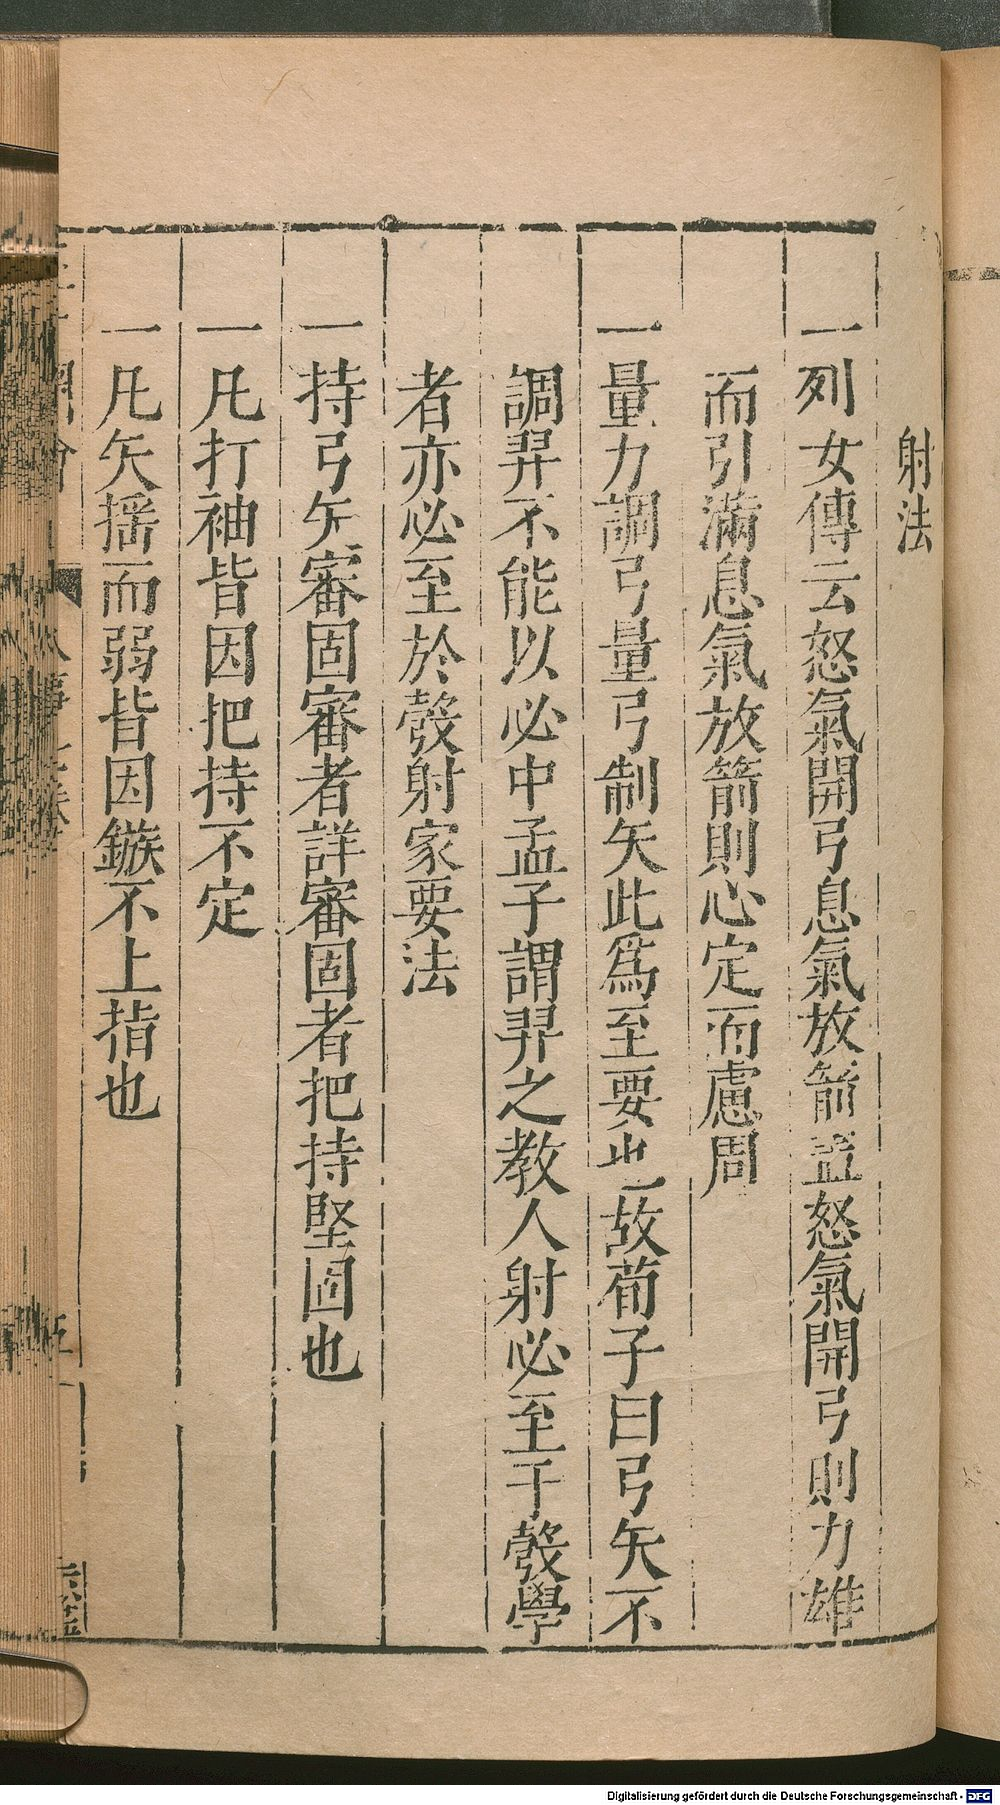 射法
一列女傳云怒氣開弓息氣放箭葢怒氣開弓則力雄
而引滿息氣放箭則心定而慮周
一量力調弓量弓制矢此爲至要也故荀子曰弓矢不
調羿不能以必中孟子謂羿之教人射必至于彀學
者亦必至於彀射家要法
一持弓矢審固審者詳審固者把持堅固也
一凡打袖皆因把持不定
一凡矢搖而弱皆因鏃不上指也
Digitalisierung gefördert durch die Deutsche Forschungsgemeinschaft - DFG